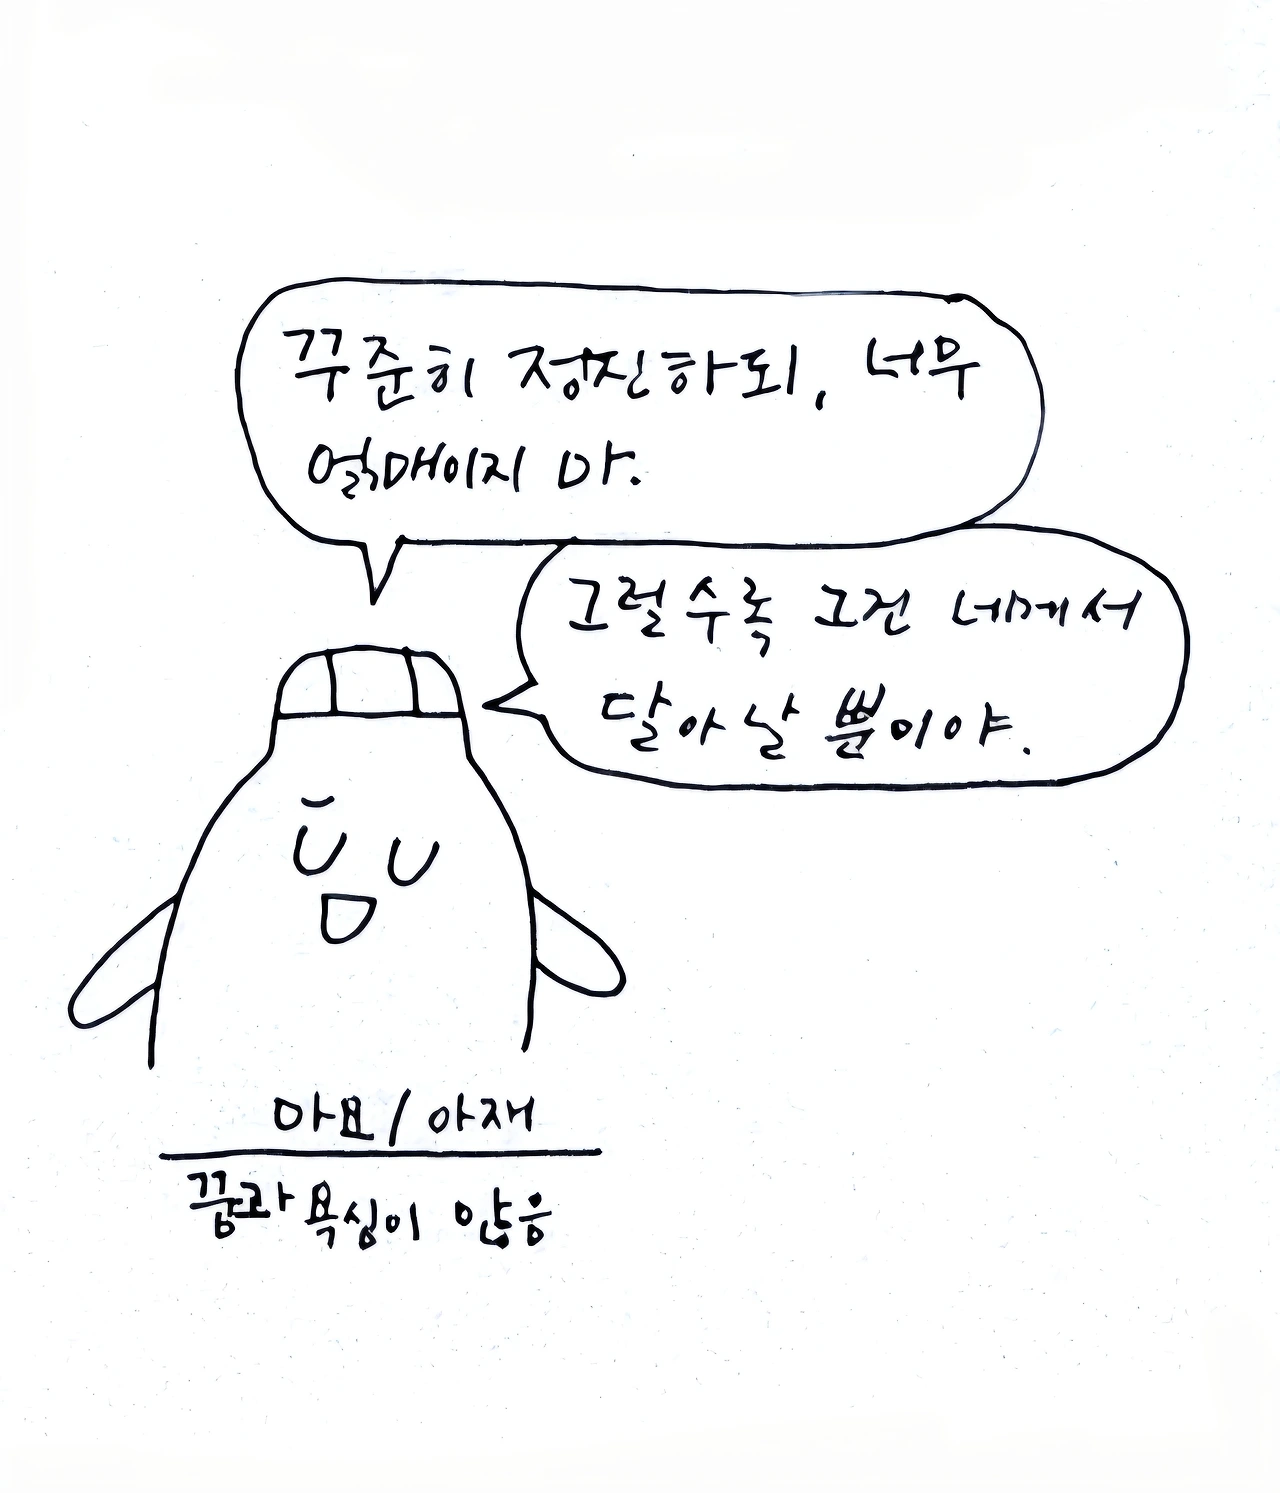 꾸준히 정진하되, 너무
얽매이지 마.
그럴수록 그건 네게서
달아날 뿐이야.
마요/아재
꿈과 욕심이 많음